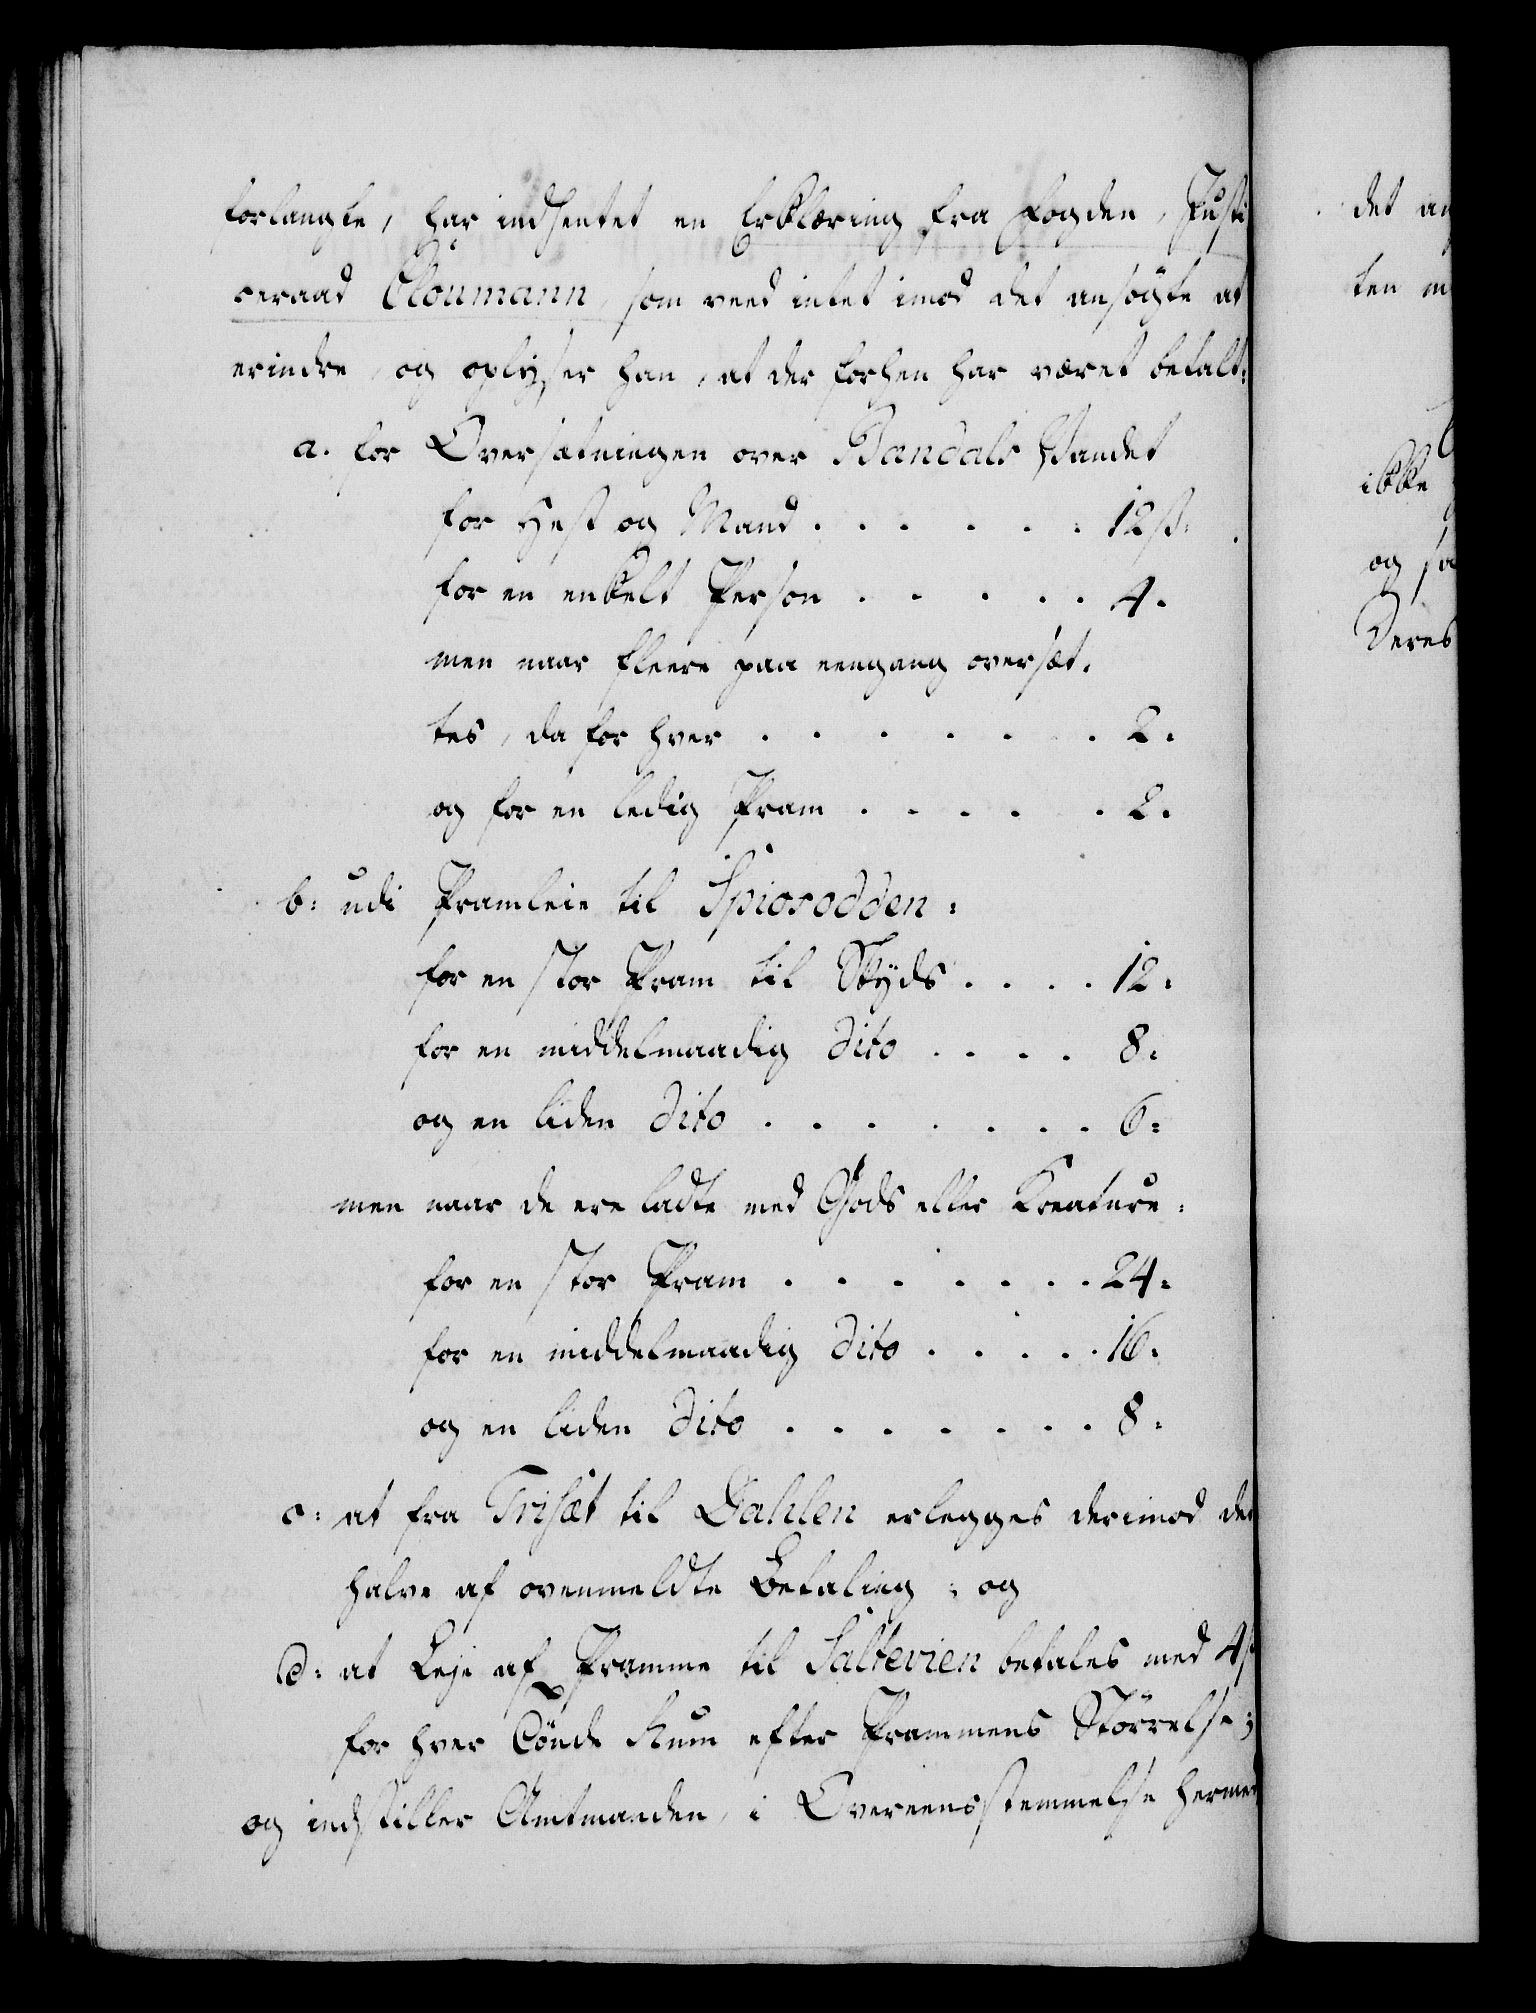 forlangte, har indhentet en Erklæring fra Fogden, Justi
ceraad Cloumann, som veed intet imod det ansøgte at
erindre, og oplyser han, at der forhen har været betalt:
a. for Oversætningen over Bandals Vandet
for Hest og Mand . . . . . . 12 ß.
for en enkelt Person . . . . . 4.
men naar fleere paa eengang oversæt-
tes, da for hver . . . . . . . 2.
og for en ledig Pram . . . . . 2.
b: udi Pramleie til Spiosodden:
for en stor Pram til Skyds . . . . 12:
for en middelmaadig Dito . . . . 8:
og en liden Dito . . . . . . . 6:
men naar de ere ladte med Gods eller Kreature:
for en stor Pram . . . . . . . 24:
for en middelmaadig Dito . . . . . 16:
og en liden Dito . . . . . . . 8:
c: at fra Trisæt til Dahlen erlegges derimod det
halve af ovenmeldte Betaling; og
d: at Leje af Pramme til Saltevien betales med 4 ß
for hver Tønde Rum efter Prammens Størrelse;
og indstiller Amtmanden, i Overeensstemmelse hermed
det an
ten m
ikke
og sa
Deres